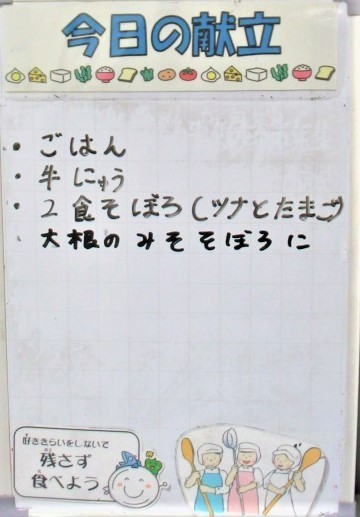 今日の献立
・ごはん
・牛にゅう
・2食そぼろ(ツナとたまご)
大根のみそそぼろに
好ききらいをしないで
残さず
食べよう